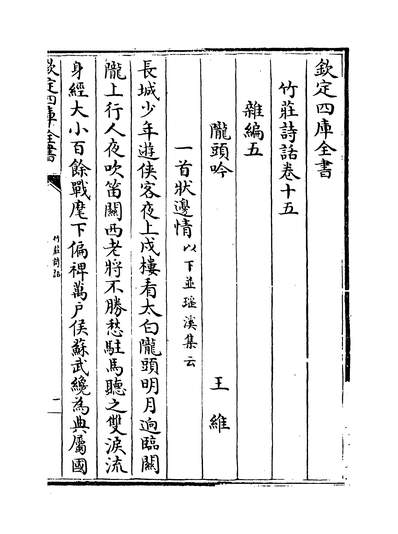 欽定四庫全書
竹莊詩話卷十五
雜編五
隴頭吟 王維
一首狀邊情以下並瑶溪集云
長城少年遊俠客夜上戍樓看太白隴頭明月逈臨關
隴上行人夜吹笛關西老將不勝愁駐馬聽之雙淚流
身經大小百餘戰麾下偏裨萬户侯蘇武纔為典屬國
欽定四庫全書
竹莊詩話
一